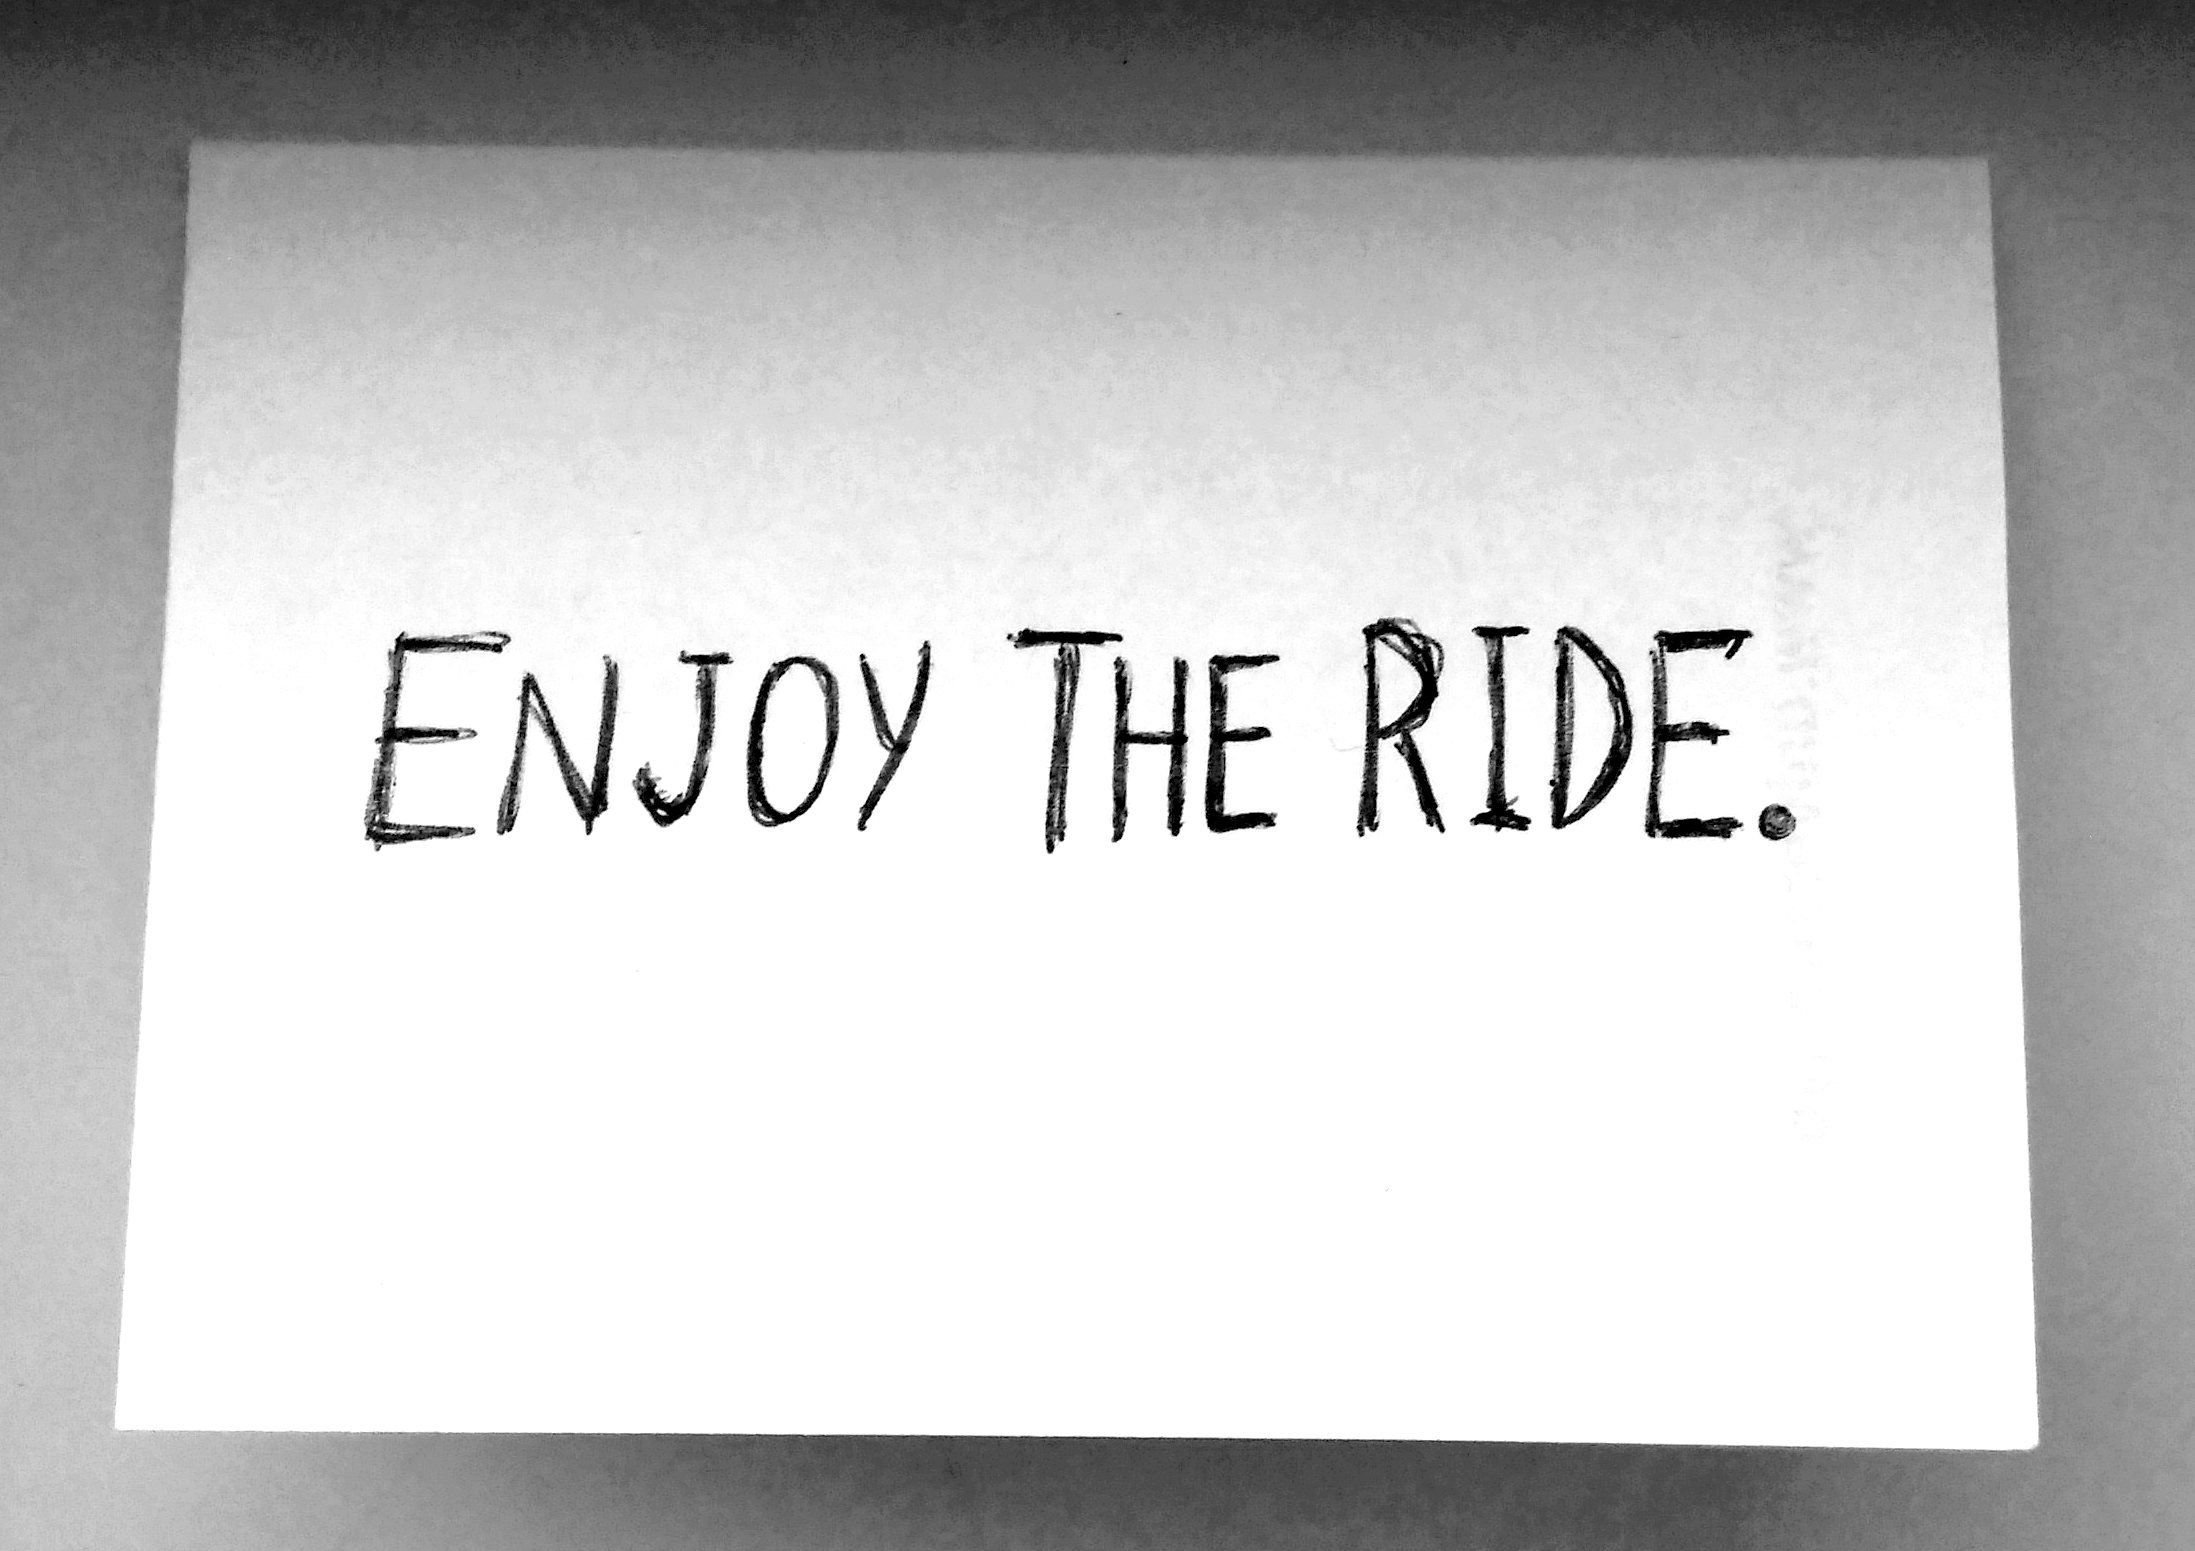 ENJOY THE RIDE.